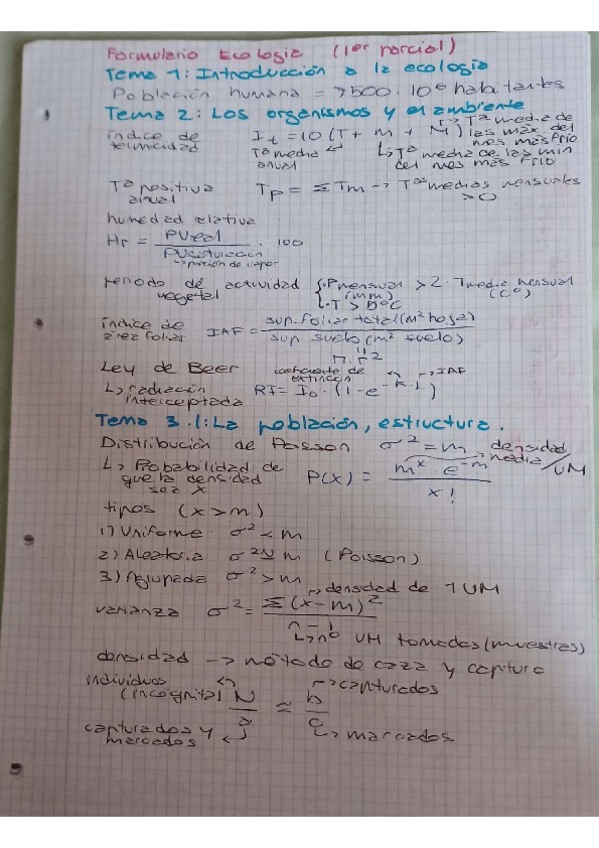 Formulario Ecología (1er parcial)
Tema 1: Introducción a la ecología
Población humana = 7500 · 10⁶ habitantes
Tema 2: Los organismos y el ambiente
índice de termicidad It = 10 (T + m + M) → Tª media de las máx del mes más frío
Tª media anual ↲ ↳ Tª media de las min del mes más frío
Tª positiva anual Tp = Σ Tm → Tªs medias mensuales > 0
humedad relativa
Hr = PVreal / PVsaturación · 100
↳ presión de vapor
Periodo de actividad vegetal { · Pmensual (mm) > 2 · Tmedia mensual (Cº)
· T > ºC
índice de área foliar IAF = sup. foliar total (m² hoja) / sup suelo (m² suelo)
Ley de Beer coeficiente de extinción → IAF
↳ radiación interceptada RI = I₀ · (1 - e^-k·I)
Tema 3.1: La población, estructura.
Distribución de Poisson σ² = m → densidad media / UM
↳ Probabilidad de que la densidad sea X P(X) = m^x · e^-m / x!
tipos (x > m)
1) Uniforme σ² < m
2) Aleatoria σ² ≈ m (Poisson)
3) Agrupada σ² > m
→ densidad de 1 UM
varianza σ² = Σ (x - m)² / n - 1
↳ nº UM tomadas (muestras)
densidad → método de caza y captura
individuos (incógnita) ↲ N / a ≈ b / c → capturados
capturados y marcados ↲ ↳ marcados